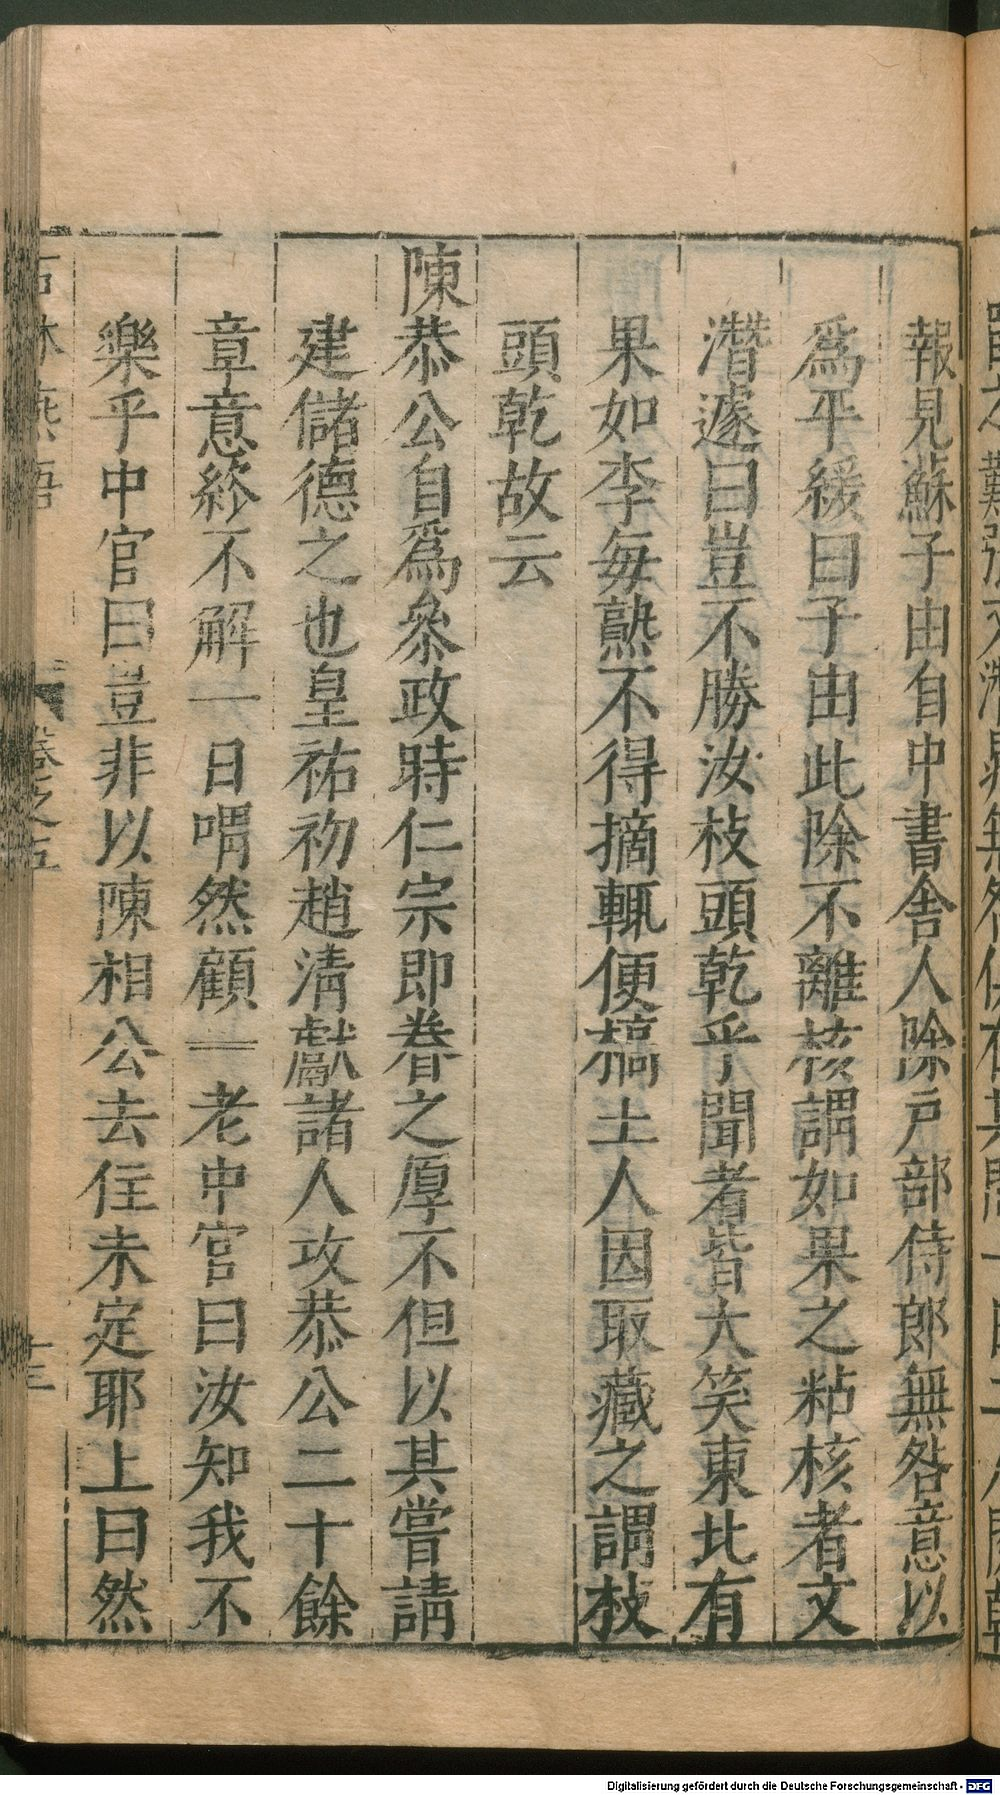 報見蘇子由自中書舎人除戶部侍郎無咎意以
爲平緩曰子由此除不離核謂如果之粘核者文
潛遽曰豈不勝汝枝頭乾乎聞者皆大笑東北有
果如李每熟不得摘輒便槁土人因取藏之謂枝
頭乾故云
陳恭公自爲叅政時仁宗即眷之厚不但以其嘗請
建儲德之也皇祐初趙清獻諸人攻恭公二十餘
章意終不解一日喟然顧一老中官曰汝知我不
樂乎中官曰豈非以陳相公去住未定耶上曰然
石林燕語
卷之五
十三
Digitalisierung gefördert durch die Deutsche Forschungsgemeinschaft - DFG